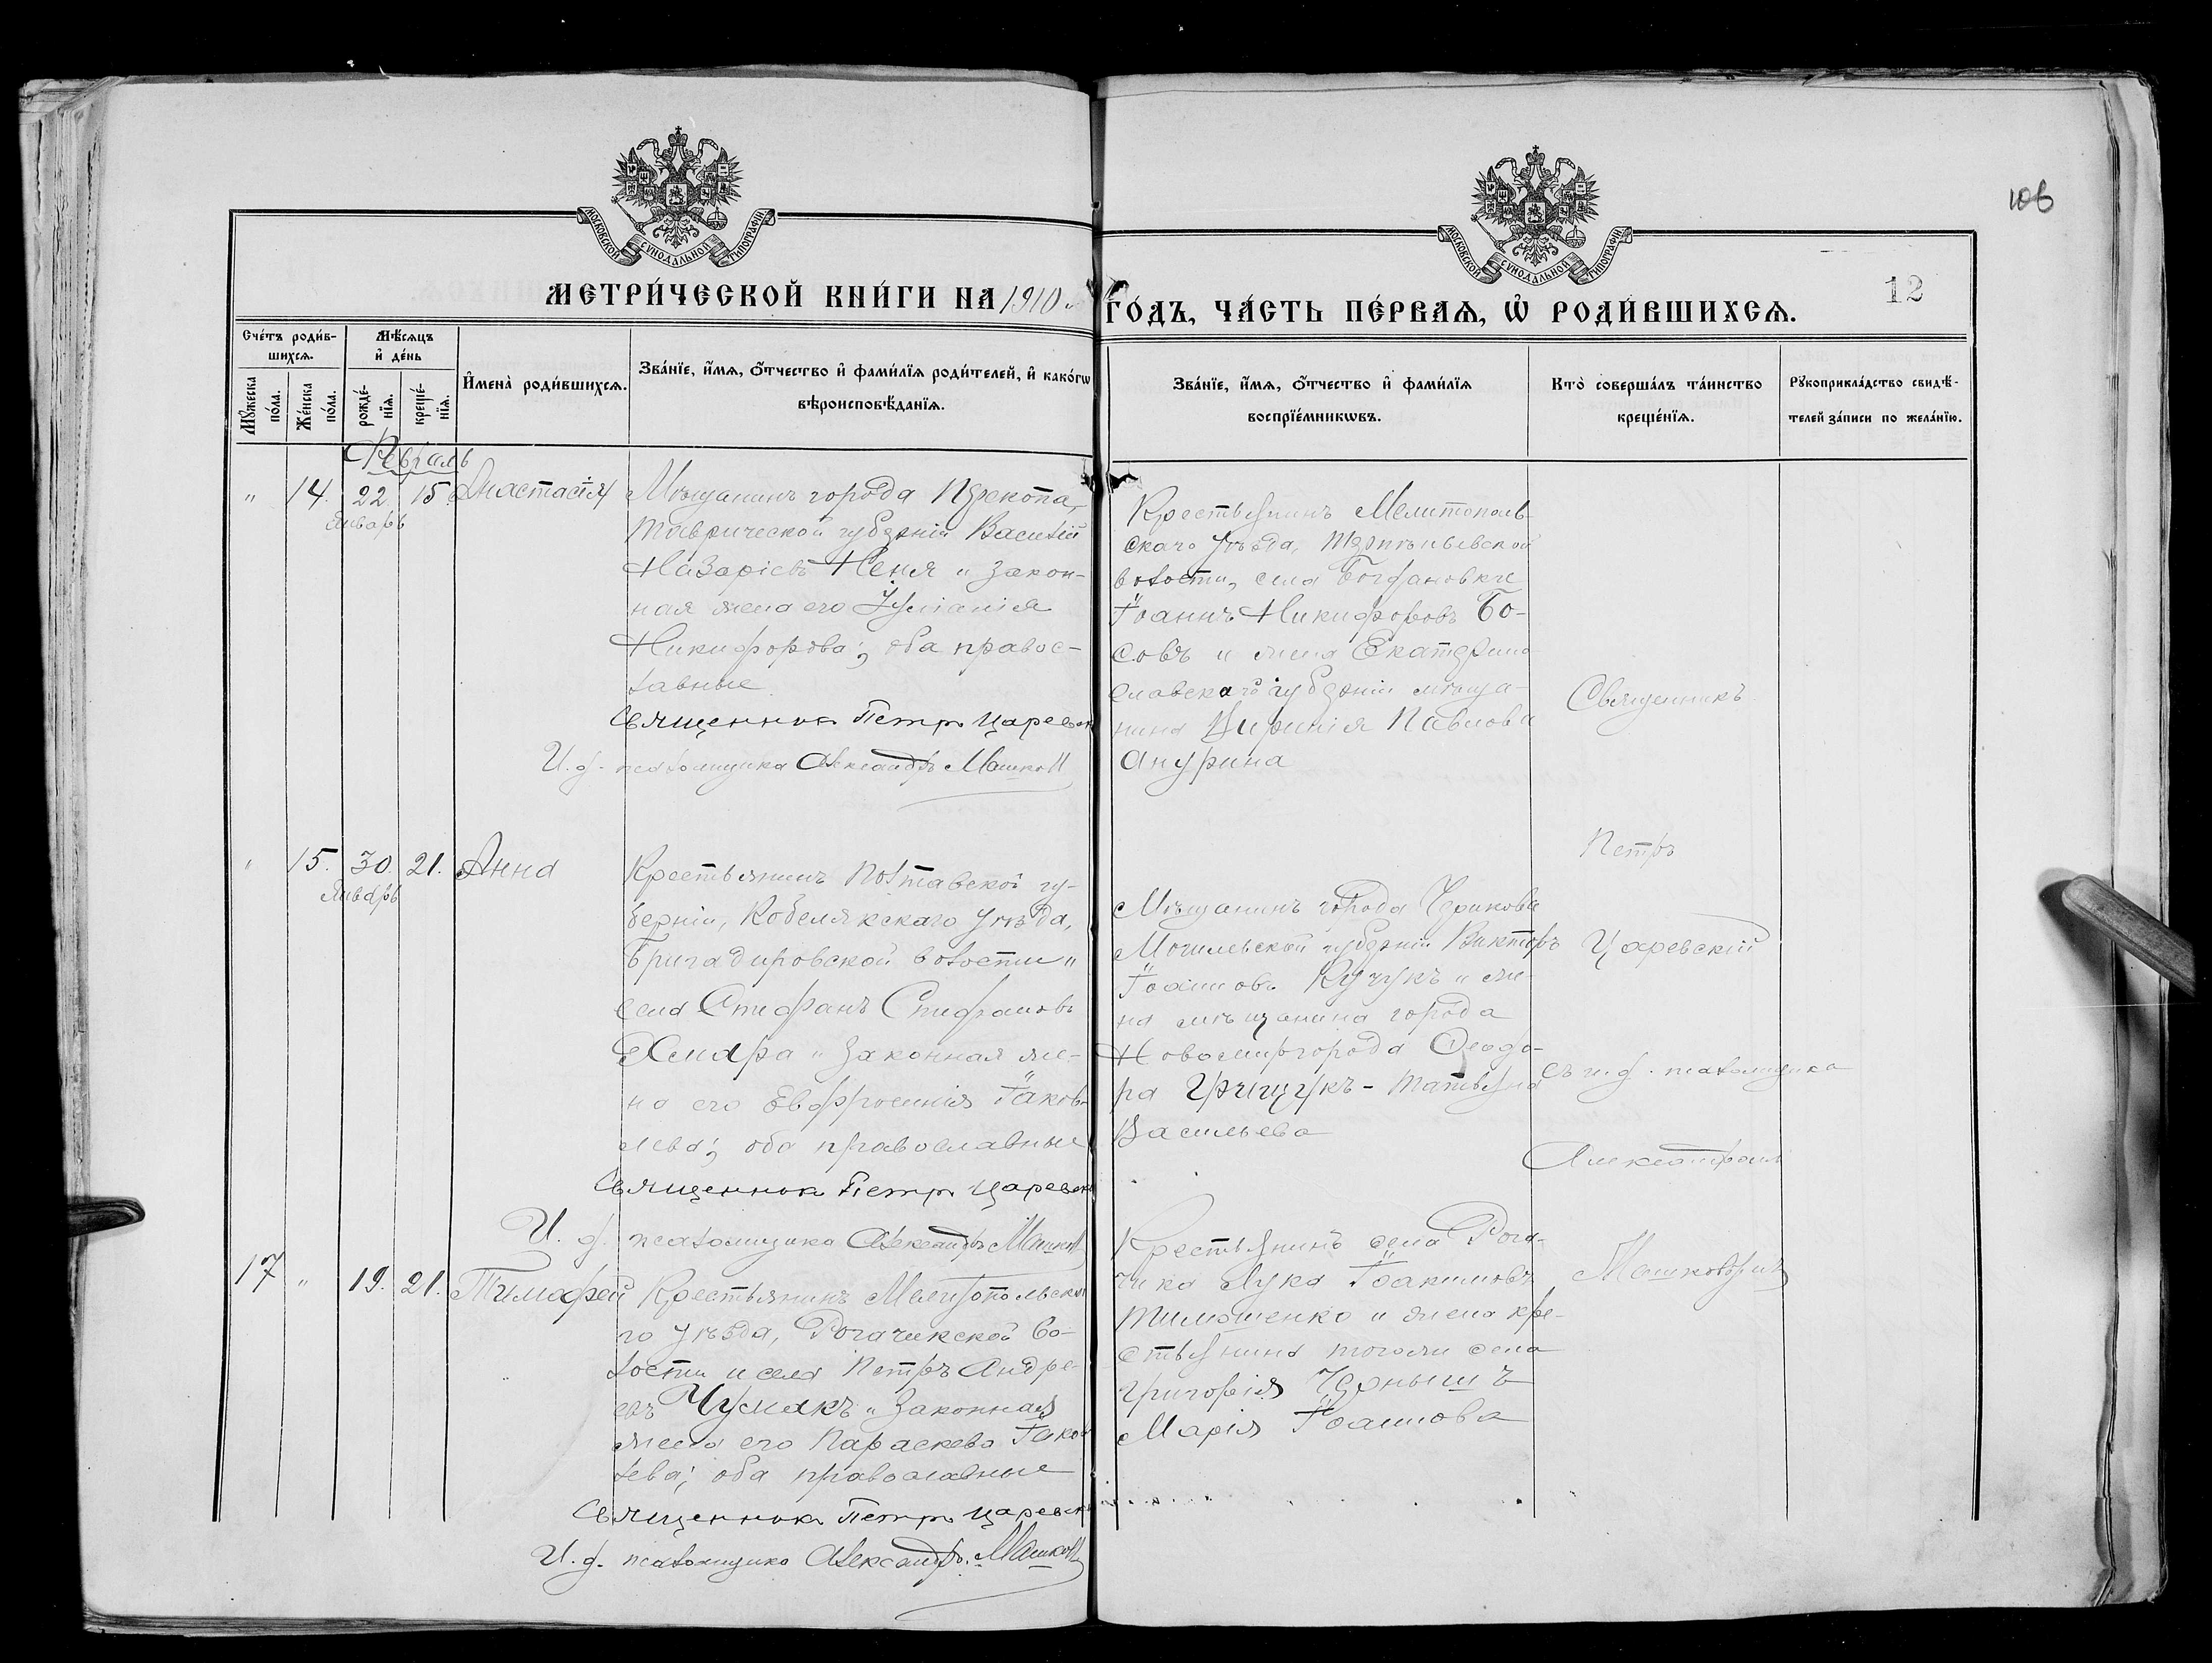 106
МОСКОВСКОЙ СѴНОДАЛЬНОЙ ТИПОГРАФІИ
МОСКОВСКОЙ СѴНОДАЛЬНОЙ ТИПОГРАФІИ
12
МЕТРИ́ЧЕСКОЙ КНИ́ГИ НА 1910
ГО́ДЪ, ЧА́СТЬ ПЕ́РВАѦ, Ѡ҆ РОДИ́ВШИХСѦ.
Сче́тъ роди́в-
шихсѧ.
Мꙋ́жеска по́ла.
Же́нска по́ла.
Мѣ́сѧцъ
и҆ де́нь
рожде́-
нїѧ.
креще́-
нїѧ.
И҆мена̀ роди́вшихсѧ.
Зва́нїе, и҆́мѧ, ѻ҆́тчество и҆ фами́лїѧ роди́телей, и҆ како́гѡ
вѣроисповѣ́данїѧ.
Зва́нїе, и҆́мѧ, ѻ҆́тчество и҆ фами́лїѧ
воспрїе́мникѡвъ.
Кто̀ соверша́лъ та́инство
креще́нїѧ.
Рꙋкоприкла́дство свидѣ́-
телей за́писи по жела́нїю.
Февраль
" 14. 22 15 Анастасія
Январь
Мѣщанинъ города Перекопа,
Таврической губерніи Василій
Назаріевъ Неня и закон-
ная жена его Іуліанія
Никифорова; оба правос-
лавные
Священник Петр Царевск
И. д. псаломщика Александръ Машков
Крестьянинъ Мелитополь-
скаго уѣзда,
волости, села Богдановки
Іоаннъ Никифоровъ Бо-
совъ и жена Екатерино
славской губерніи мѣща-
нина Павлова
Анурина
" 15. 30. 21. Анна
Январь
Крестьянинъ Полтавской гу-
берніи, Кобелякскаго уѣзда,
Бригадировской волости и
села Стефанъ Стефановъ
Хмара и законная же-
на его Евфросинія Іаков-
лева; оба православные
Священник Петр Царевск
И. д. псаломщика Александръ Машков
Мѣщанинъ города Черикова
Могилевской губерніи Викторъ
Іоанновъ Кучукъ и же-
на мѣщанина города
Новомиргорода Ѳеодо-
ра Грищукъ - Татьяна
Васильева
17 " 19. 21. Тимофей
Крестьянинъ Мелитопольска
го уѣзда, Рогачикской во-
лости и села Петръ Андре-
евъ Чумакъ и законная
жена его Параскева Іаков
лева; оба православные
Священник Петр Царевск
И. д. псаломщика Александръ Машков
Крестьянинъ села Рога-
чика Лука Іоакимовъ
Тимошенко и жена кре-
стьянина тогожи села
Григорія Чернышъ
Марія Іоаннова
Священникъ
Петръ
Царевскій
съ и. д. псаломщика
Александромъ